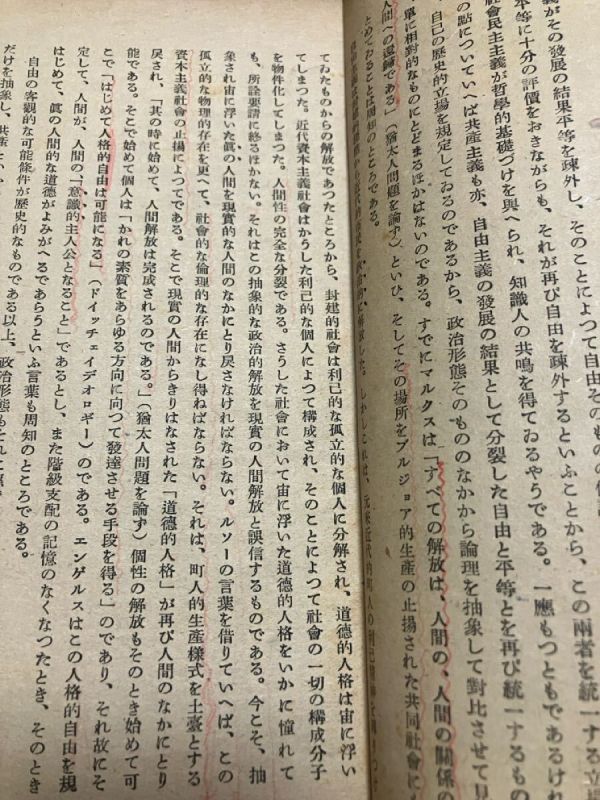 がその發展の結果平等を疎外し、そのことによつて自由そのもの
平等に十分の評價をおきながらも、それが再び自由を疎外するといふことから、この兩者を統一する立場
社會民主主義が哲學的基礎づけを與へられ、知識人の共鳴を得てゐるやうである。一應もつともであるけれ
の點についていへば共産主義も亦、自由主義の發展の結果として分裂した自由と平等とを再び統一するもの
、自己の歷史的立場を規定しておるのであるから、政治形態そのもののなかから論理を抽象して對比させて見
單に相對的なものにとどまるほかはないのである。すでにマルクスは「すべての解放は、人間の、人間の關係の
人間への還歸である」(猶太人問題を論ず)といひ、そしてその場所をブルジョア的生産の止揚された共同社會に
とめておることは周知のところである。
てゐたものからの解放であつたところから、封建的社會は利己的な孤立的な個人に分解され、道德的人格は宙に浮い
てしまつた。近代資本主義社會はかうした利己的な個人によつて構成され、そのことによつて社會の一切の構成分子
を物件化してしまつた。人間性の完全な分裂である。さうした社會において宙に浮いた道德的人格をいかに憧れて
も、所詮要請に終るほかない。それはこの抽象的な政治的解放を現實の人間解放と誤信するものである。今こそ、抽
象され宙に浮いた眞の人間を現實的な人間のなかにとり戾さなければならない。ルソーの言葉を借りていへば、この
孤立的な物理的存在を更へて、社會的な倫理的な存在になし得ねばならない。それは、町人的生産樣式を土臺とする
資本主義社會の止揚によつてである。そこで現實の人間からきりはなされた「道德的人格」が再び人間のなかにとり
戾され、「其の時に始めて、人間解放は完成されるのである。」(猶太人問題を論ず)個性の解放もそのとき始めて可
能である。そこで始めて個人は「かれの素質をあらゆる方向に向つて發達させる手段を得る」のであり、それ故にそ
こで「はじめて人格的自由は可能になる」(ドイッチェイデオロギー)のである。エンゲルスはこの人格的自由を規
定して、人間が、人間の「意識的主人公となること」であるとし、また階級支配の記憶のなくなつたとき、そのとき
はじめて、眞の人間的な道德がよみがへるであらうといふ言葉も周知のところである。
自由の客觀的な可能條件が歷史的なものである以上、政治形態もそれに
だけを抽象し、共産